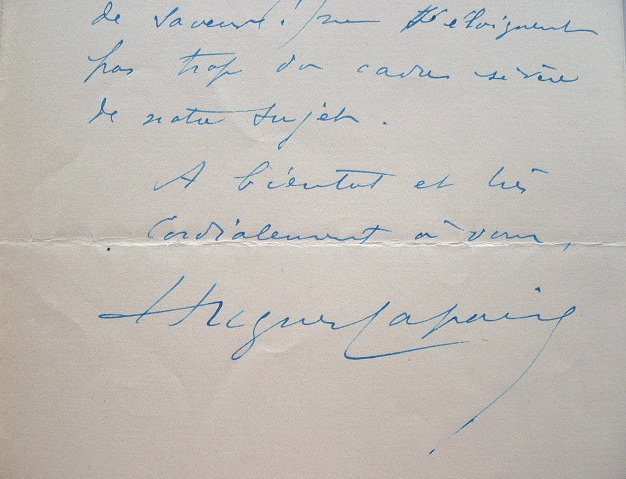 de saveur! ne s'éloignent
pas trop du cadre sévère
de notre sujet.
A bientôt et très
Cordialement à vous,
Hugues Lapaire